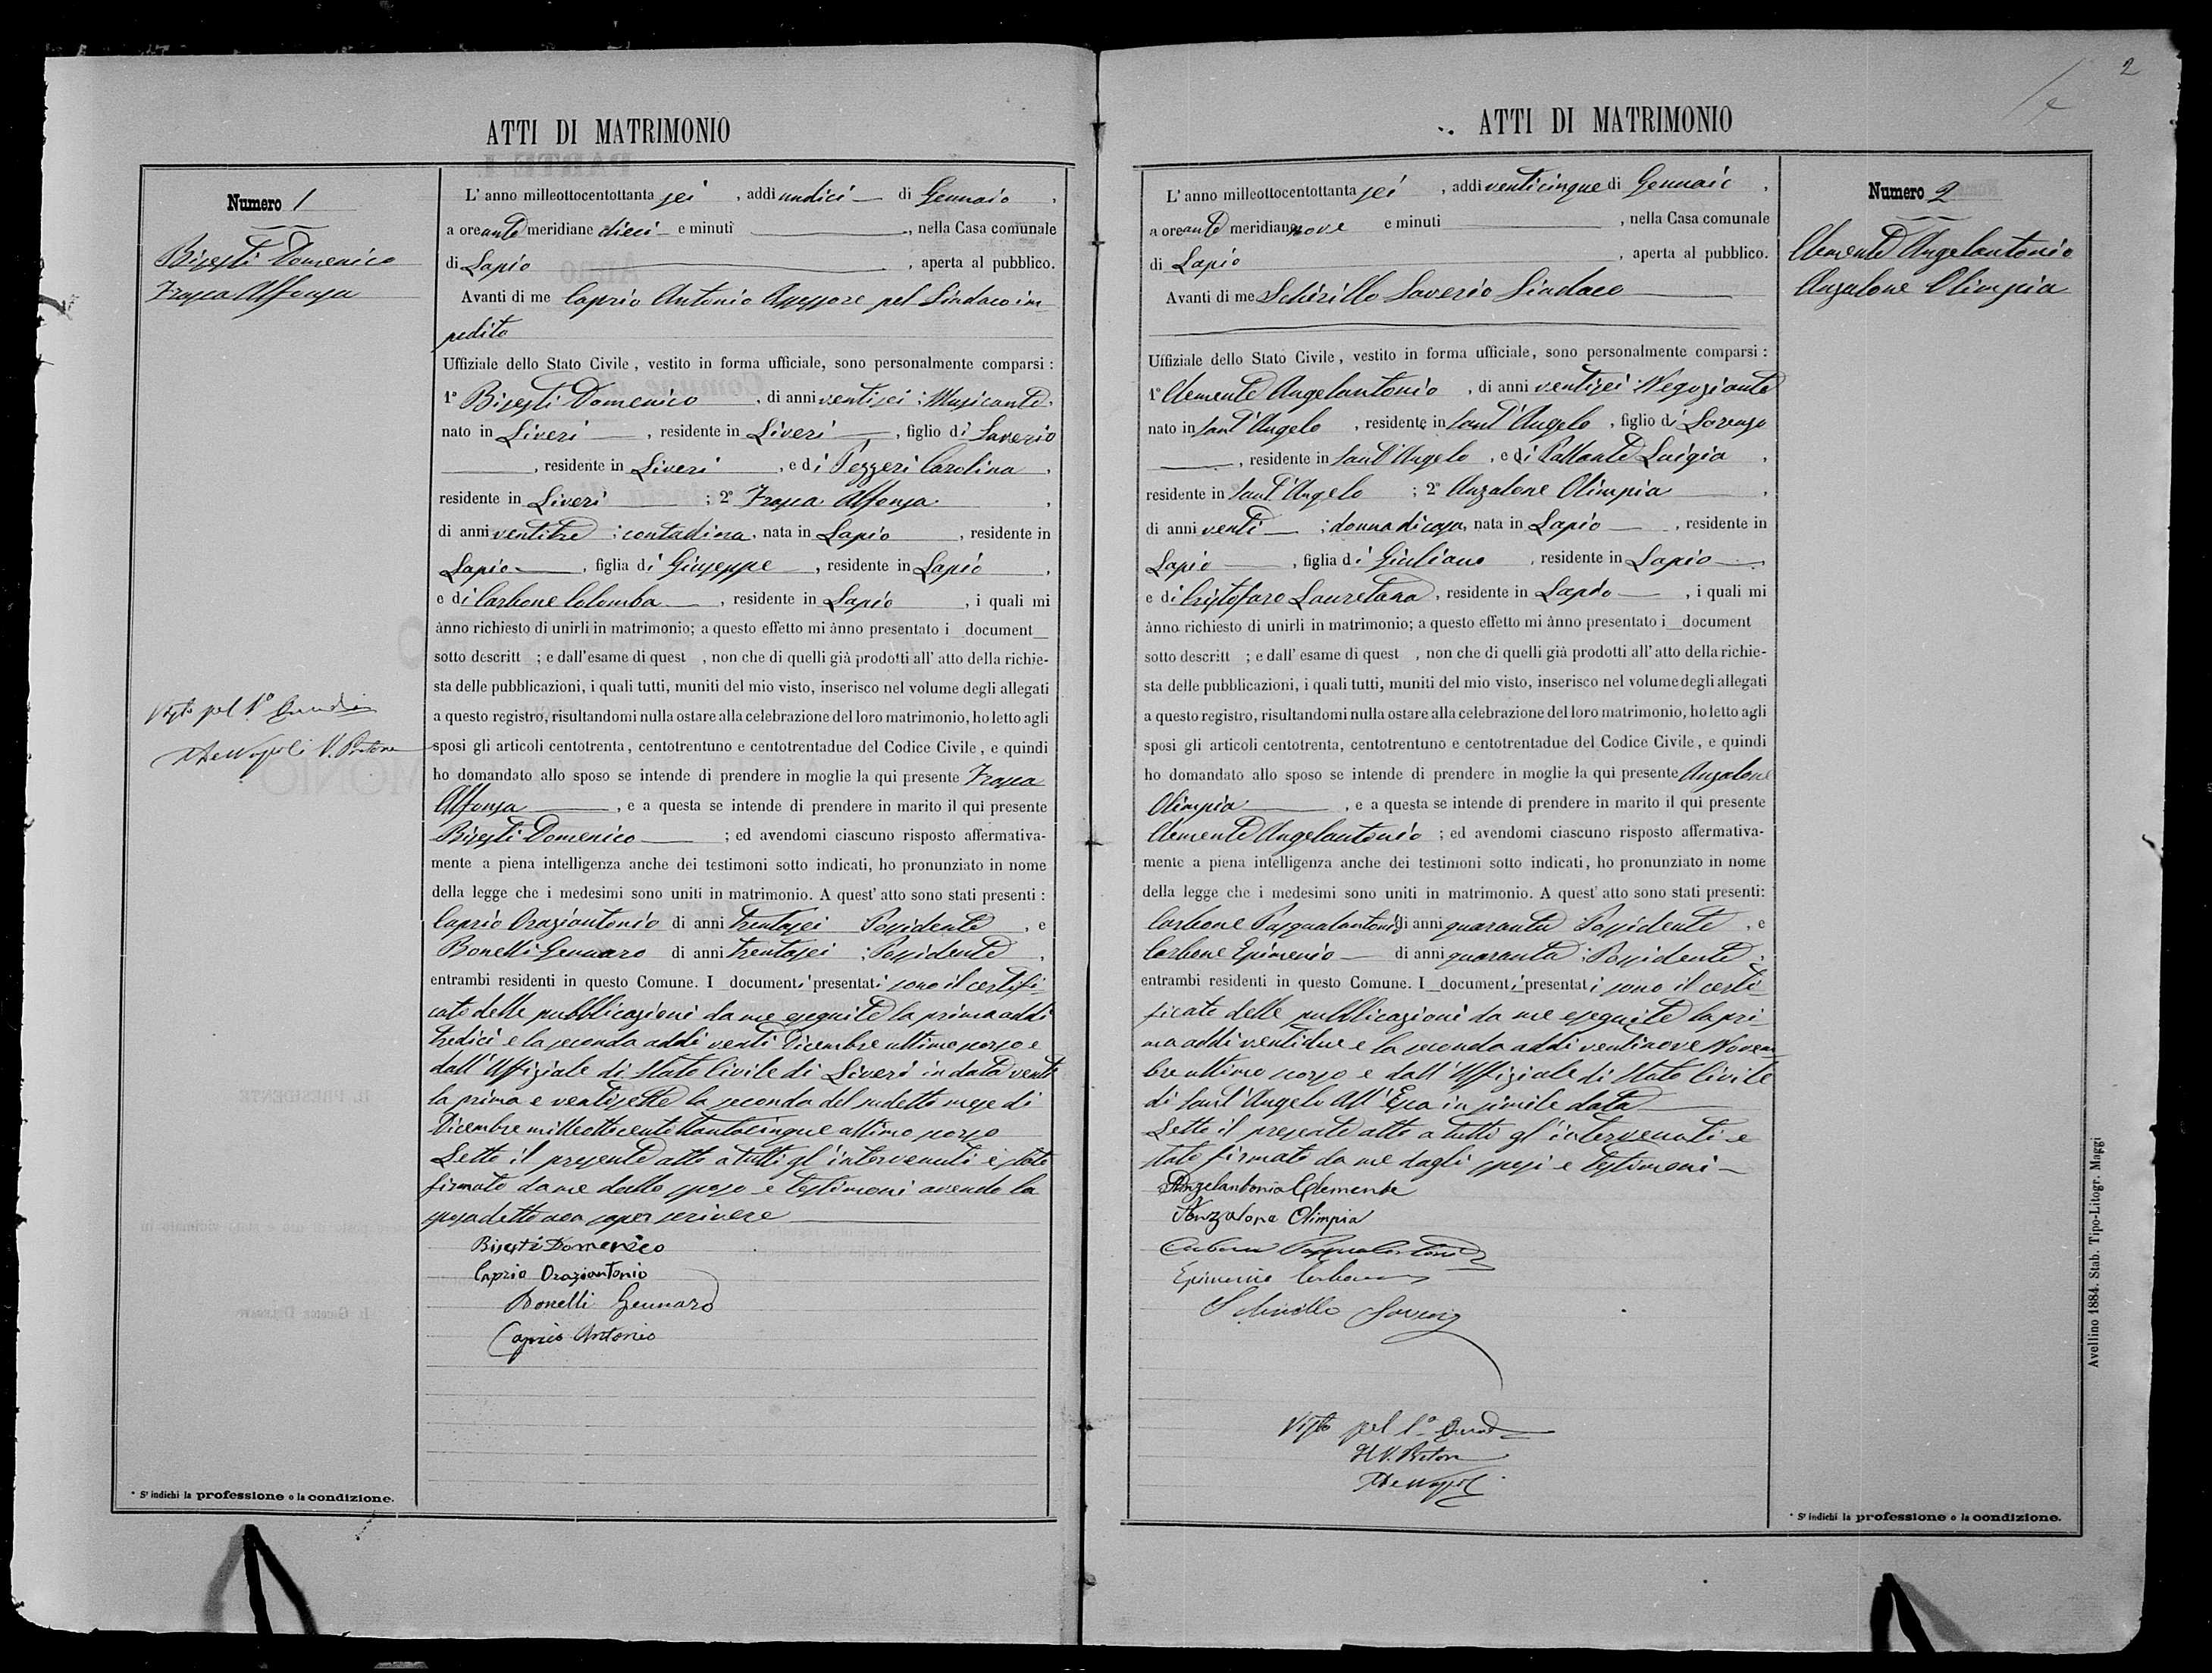 ATTI DI MATRIMONIO
Numero 1
Bisesti Domenico
Frasca Alfonsa
Visto pel 1º
De Napoli V. Pretore
L'anno milleottocentottanta sei, addi undici di Gennaio,
a ore ante meridiane dieci e minuti, nella Casa comunale
di Lapio, aperta al pubblico.
Avanti di me Caprio Antonio Assessore pel Sindaco im-
pedito
Uffiziale dello Stato Civile, vestito in forma ufficiale, sono personalmente comparsi:
1º Bisesti Domenico, di anni ventisei; Musicante,
nato in Liveri, residente in Liveri, figlio di Saverio
, residente in Liveri, e di Pezzeri Carolina,
residente in Liveri; 2º Frasca Alfonsa,
di anni ventitre; contadina, nata in Lapio, residente in
Lapio, figlia di Giuseppe, residente in Lapio,
e di Carbone Colomba, residente in Lapio, i quali mi
ànno richiesto di unirli in matrimonio; a questo effetto mi ànno presentato i document
sotto descritt ; e dall'esame di quest , non che di quelli già prodotti all'atto della richie-
sta delle pubblicazioni, i quali tutti, muniti del mio visto, inserisco nel volume degli allegati
a questo registro, risultandomi nulla ostare alla celebrazione del loro matrimonio, ho letto agli
sposi gli articoli centotrenta, centotrentuno e centotrentadue del Codice Civile, e quindi
ho domandato allo sposo se intende di prendere in moglie la qui presente Frasca
Alfonsa, e a questa se intende di prendere in marito il qui presente
Bisesti Domenico; ed avendomi ciascuno risposto affermativa-
mente a piena intelligenza anche dei testimoni sotto indicati, ho pronunziato in nome
della legge che i medesimi sono uniti in matrimonio. A quest'atto sono stati presenti:
Caprio Oraziantonio di anni trentasei Possidente, e
Bonelli Gennaro di anni trentasei; Possidente,
entrambi residenti in questo Comune. I documenti presentati sono il certifi-
cato delle pubblicazioni da me eseguite la prima addi
tredici e la seconda addi venti Dicembre ultimo scorso e
dall'Uffiziale di Stato Civile di Liveri in data venti
la prima e ventisette la seconda del sudetto mese di
Dicembre milleottocentottantacinque ultimo scorso
Letto il presente atto a tutti gl'intervenuti è stato
firmato da me dallo sposo e testimoni avendo la
sposa detto non saper scrivere
Bisesti Domenico
Caprio Oraziantonio
Bonelli Gennaro
Caprio Antonio
* Si indichi la professione o la condizione.
2
ATTI DI MATRIMONIO
Numero 2
Clemente Angelantonio
Anzalone Olimpia
L'anno milleottocentottanta sei, addi venticinque di Gennaio,
a ore ante meridiane nove e minuti, nella Casa comunale
di Lapio, aperta al pubblico.
Avanti di me Schirillo Saverio Sindaco
Uffiziale dello Stato Civile, vestito in forma ufficiale, sono personalmente comparsi:
1º Clemente Angelantonio, di anni ventisei; Negoziante
nato in Sant'Angelo, residente in Sant'Angelo, figlio di Lorenzo
, residente in Sant'Angelo, e di Pallante Luigia,
residente in Sant'Angelo; 2º Anzalone Olimpia,
di anni venti; donna di casa, nata in Lapio, residente in
Lapio, figlia di Giuliano, residente in Lapio,
e di Cristofaro Lauretana, residente in Lapio, i quali mi
ànno richiesto di unirli in matrimonio; a questo effetto mi ànno presentato i document
sotto descritt ; e dall'esame di quest , non che di quelli già prodotti all'atto della richie-
sta delle pubblicazioni, i quali tutti, muniti del mio visto, inserisco nel volume degli allegati
a questo registro, risultandomi nulla ostare alla celebrazione del loro matrimonio, ho letto agli
sposi gli articoli centotrenta, centotrentuno e centotrentadue del Codice Civile, e quindi
ho domandato allo sposo se intende di prendere in moglie la qui presente Anzalone
Olimpia, e a questa se intende di prendere in marito il qui presente
Clemente Angelantonio; ed avendomi ciascuno risposto affermativa-
mente a piena intelligenza anche dei testimoni sotto indicati, ho pronunziato in nome
della legge che i medesimi sono uniti in matrimonio. A quest'atto sono stati presenti:
Carbone Pasqualantonio di anni quaranta Possidente, e
Carbone Epimenio di anni quaranta; Possidente;
entrambi residenti in questo Comune. I documenti presentati sono il certi-
ficato delle pubblicazioni da me eseguite la pri-
ma addi ventidue e la seconda addi ventinove Novem
bre ultimo scorso e dall'Uffiziale di Stato Civile
di Sant'Angelo All'Esca in simile data
Letto il presente atto a tutti gl'intervenuti e
stato firmato da me dagli sposi e testimoni
Angelantonio Clemente
Anzalone Olimpia
Carbone Pasqualantonio
Epimenio Carbone
Schirillo Saverio
Visto pel 1º
Il V. Pretore
De Napoli
* Si indichi la professione o la condizione.
Avellino 1884. Stab. Tipo-Litogr. Maggi